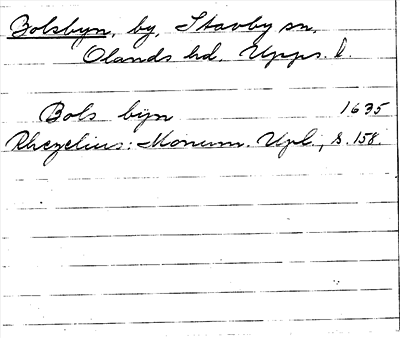 Bolsbyn, by, Stavby sn,
Olands hd, Upps. l.
Bols byn 1635
Rhezelius: Monum. Upl., s. 158.